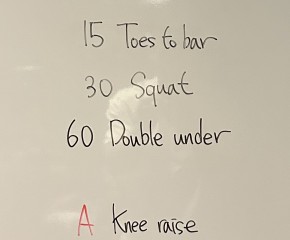 15 Toes to bar
30 Squat
60 Double under
A Knee raise